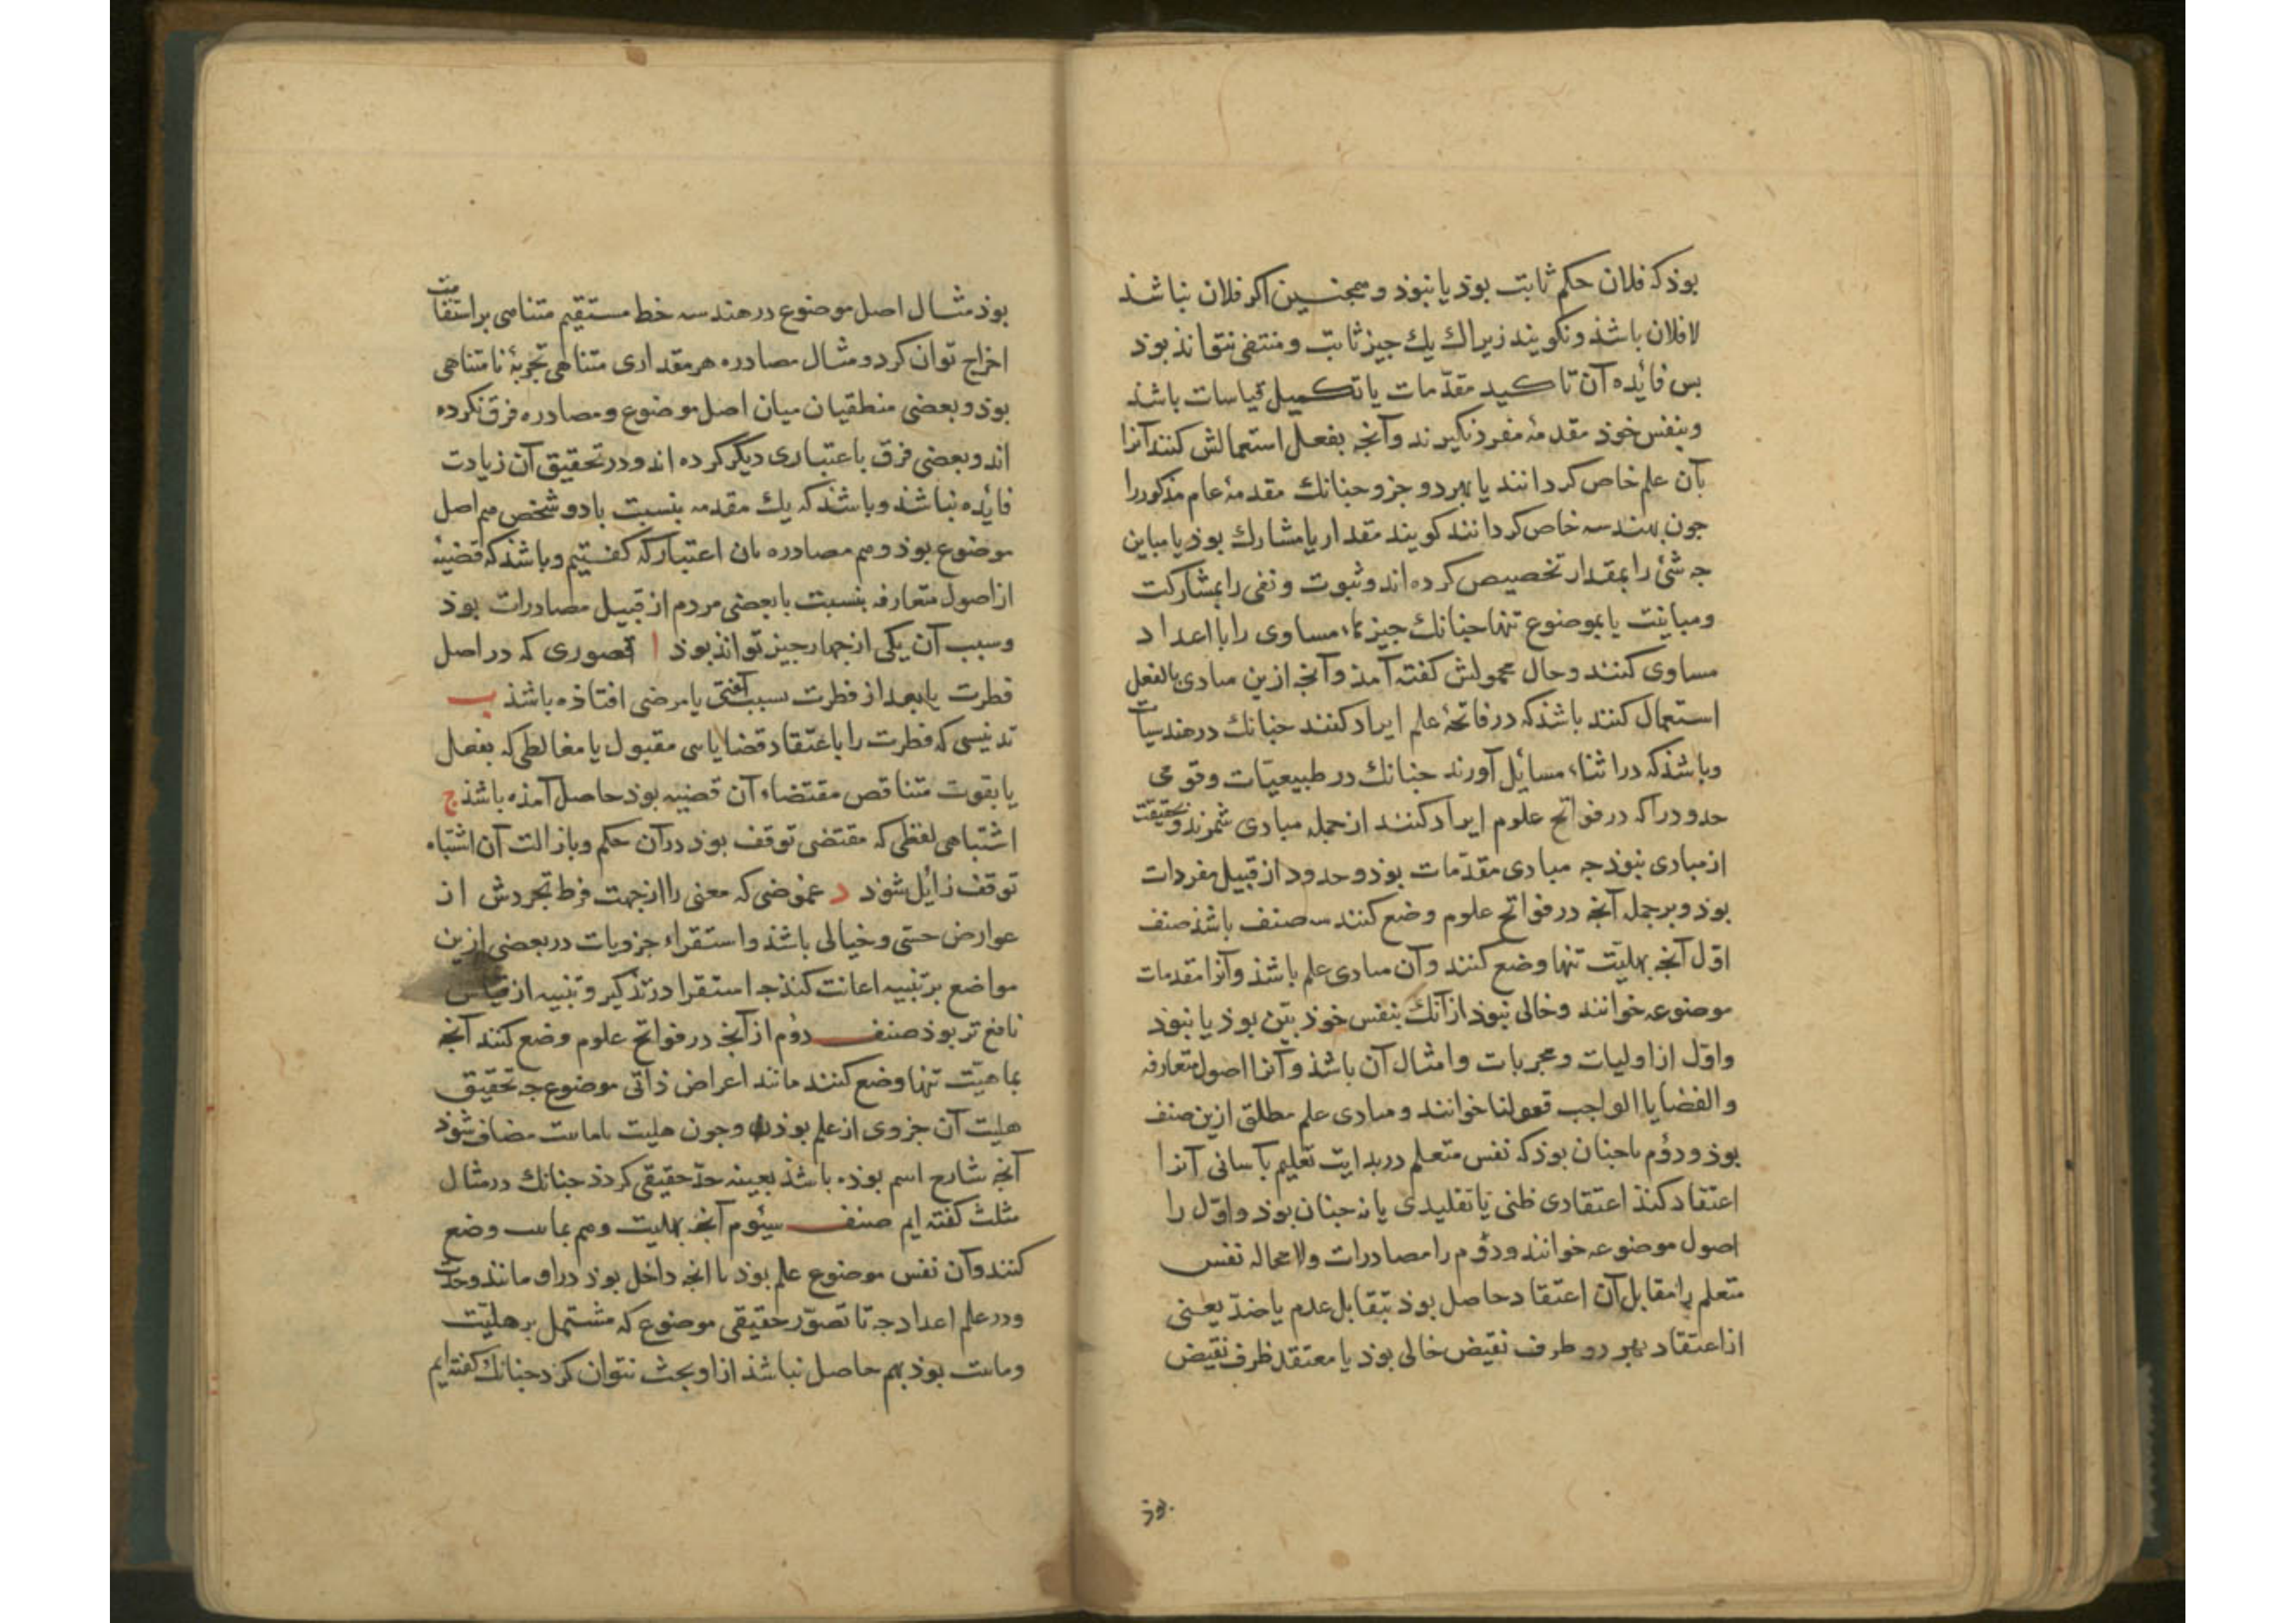 بوذ که فلان حکم ثابت بوذ یا نبوذ و همجنین اکر فلان نباشذ
لا فلان باشذ و نکویند زیراك یك جیز ثابت و منتفی نتواند بوذ
بس فائده آن تاکید مقدّمات یا تکمیل قیاسات باشذ
و بنفس خوذ مقدمهٔ مفرد نکیرند و آنجه بفعل استعمالش کنند آنرا
بآن علم خاص کردانند یا بهر دو جزو جنانك مقدمهٔ عام مذکور را
جون بهندسه خاص کردانند کویند مقدار یا مشارك بوذ یا مباین
جه شئ را بمقدار تخصیص کرده اند و ثبوت و نفی را بمشارکت
و مباینت یا بموضوع تنها جنانك جیزهاء مساوی را با اعداد
مساوی کنند و حال محمولش کفته آمذ و آنجه ازین مبادی بالفعل
استعمال کنند باشذ که در فاتحهٔ علم ایراد کنند جنانك در هندسیات
و باشذ که در اثناء مسائل آورند جنانك در طبیعیّات و قومی
حدود را که در فواتح علوم ایراد کنند از جمله مبادی شمرند و بحقیقت
از مبادی نبوذ جه مبادی مقدّمات بوذ و حدود از قبیل مفردات
بوذ و بر جمله آنجه در فواتح علوم وضع کنند سه صنف باشذ صنف
اوّل آنجه بهلیّت تنها وضع کنند و آن مبادی علم باشذ و آنرا مقدمات
موضوعه خوانند و خالی نبوذ از آنك بنفس خوذ بیّن بوذ یا نبوذ
و اوّل از اولیات و مجربات و امثال آن باشذ و آنرا اصول متعارفه
و القضایا الواجب قبولنا خوانند و مبادی علم مطلق ازین صنف
بوذ و دوُم یا جنان بوذ که نفس متعلم در بدایت تعلیم بآسانی آنرا
اعتقاد کنذ اعتقادی ظنی یا تقلیدی یا نه جنان بوذ و اوّل را
اصول موضوعه خوانند و دوُم را مصادرات و لا محاله نفس
متعلم را مقابل آن اعتقاد حاصل بوذ بتقابل عدم یا ضدّ یعنی
از اعتقاد بهر دو طرف نقیض خالی بوذ یا معتقد طرف نقیض
بوذ
بوذ مثال اصل موضوع در هندسه خط مستقیم متناهی بر استقامت
اخراج توان کرد و مثال مصادره هر مقداری متناهی تجزیهٔ نامتناهی
بوذ و بعضی منطقیان میان اصل موضوع و مصادره فرق نکرده
اند و بعضی فرق باعتباری دیکر کرده اند و در تحقیق آن زیادت
فائده نباشذ و باشذ که یك مقدمه بنسبت با دو شخص هم اصل
موضوع بوذ و هم مصادره بان اعتبار که کفتیم و باشذ که قضیهٔ
از اصول متعارفه بنسبت با بعضی مردم از قبیل مصادرات بوذ
و سبب آن یکی از جهار جیز تواند بوذ ا قصوری که در اصل
فطرت یا بعد از فطرت بسبب آفتی یا مرضی افتاذه باشذ ب
تدنیسی که فطرت را باعتقاد قضایایی مقبول یا مغالطی که بفعل
یا بقوت متناقض مقتضاء آن قضیه بوذ حاصل آمذه باشذ ج
اشتباهی لفظی که مقتضی توقف بوذ در آن حکم و بازالت آن اشتباه
توقف زایل شوذ د غموضی که معنی را از جهت فرط تجردش از
عوارض حسّی و خیالی باشذ و استقراء جزویات در بعضی ازین
مواضع بر تنبیه اعانت کنذ جه استقرا در تذکیر و تنبیه از قیاس
نافع تر بوذ صنف دوُم از آنجه در فواتح علوم وضع کنند آنجه
بماهیّت تنها وضع کنند مانند اعراض ذاتی موضوع جه تحقیق
هلیت آن جزوی از علم بوذ و جون هلیت با مائیت مضاف شوذ
آنجه شارح اسم بوذه باشذ بعینه حدّ حقیقی کردذ جنانك در مثال
مثلث کفته ایم صنف سیُوم آنجه بهلیت و هم بمائیت وضع
کنند و آن نفس موضوع علم بوذ با انجه داخل بوذ در او مانند وحدت
در علم اعداد جه تا تصوّر حقیقی موضوع که مشتمل بر هلیّت
و مائیت بوذ بهم حاصل نباشذ از او بحث نتوان کرد جنانك کفته ایم